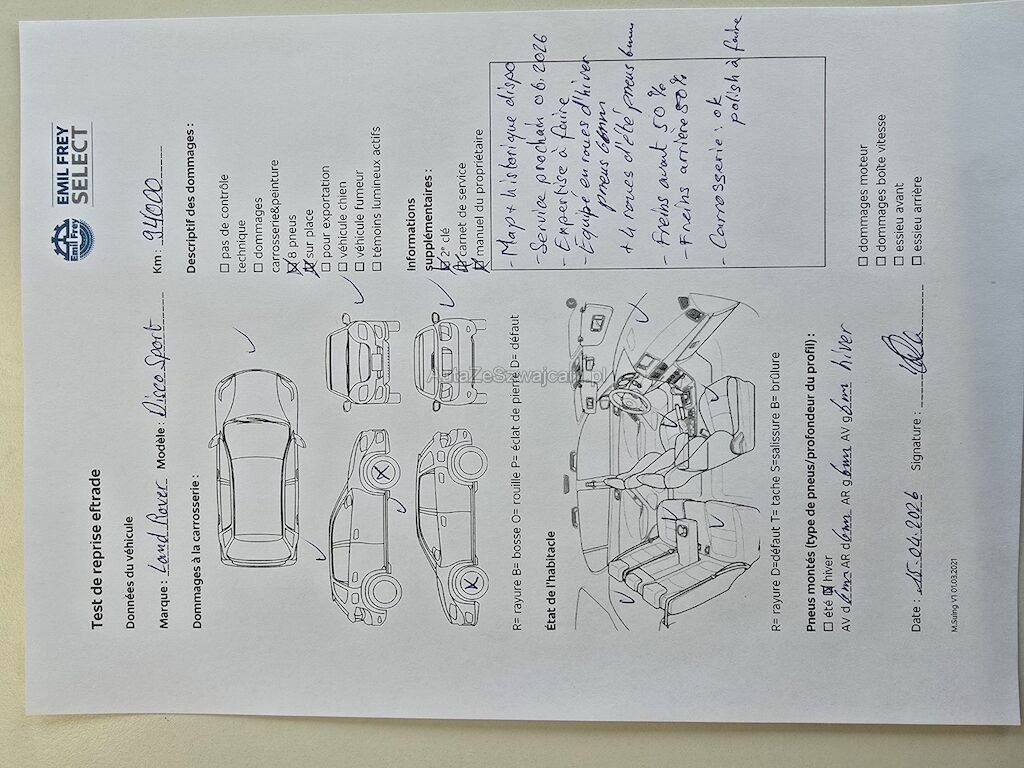 Test de reprise eftrade
Emil Frey
EMIL FREY
SELECT
Données du véhicule
Marque : Land Rover Modèle : Disco Sport Km : 94000
Dommages à la carrosserie :
Descriptif des dommages :
☐ pas de contrôle
technique
☐ dommages
carrosserie&peinture
☒ 8 pneus
☒ sur place
☐ pour exportation
☐ véhicule chien
☐ véhicule fumeur
☐ témoins lumineux actifs
Informations
supplémentaires :
☒ 2ᵉ clé
☒ carnet de service
☒ manuel du propriétaire
R= rayure B= bosse O= rouille P= éclat de pierre D= défaut
- Map + historique dispo
- Service prochain 06.2026
- Expertise à faire
- Equipé en roues d'hiver
pneus 6mm
+ 4 roues d'été pneus 6mm
- Freins avant 50%
- Freins arrière 50%
- Carrosserie : ok
polish à faire
État de l'habitacle
R= rayure D=défaut T= tache S=salissure B= brûlure
Pneus montés (type de pneus/profondeur du profil) :
☐ été ☒ hiver
AV d 6mm AR d 6mm AR g 6mm AV g 6mm hiver
☐ dommages moteur
☐ dommages boîte vitesse
☐ essieu avant
☐ essieu arrière
Date : 15.04.2026 Signature :
M.Suing V1 01.03.2021
AutaZeSzwajcarii.pl